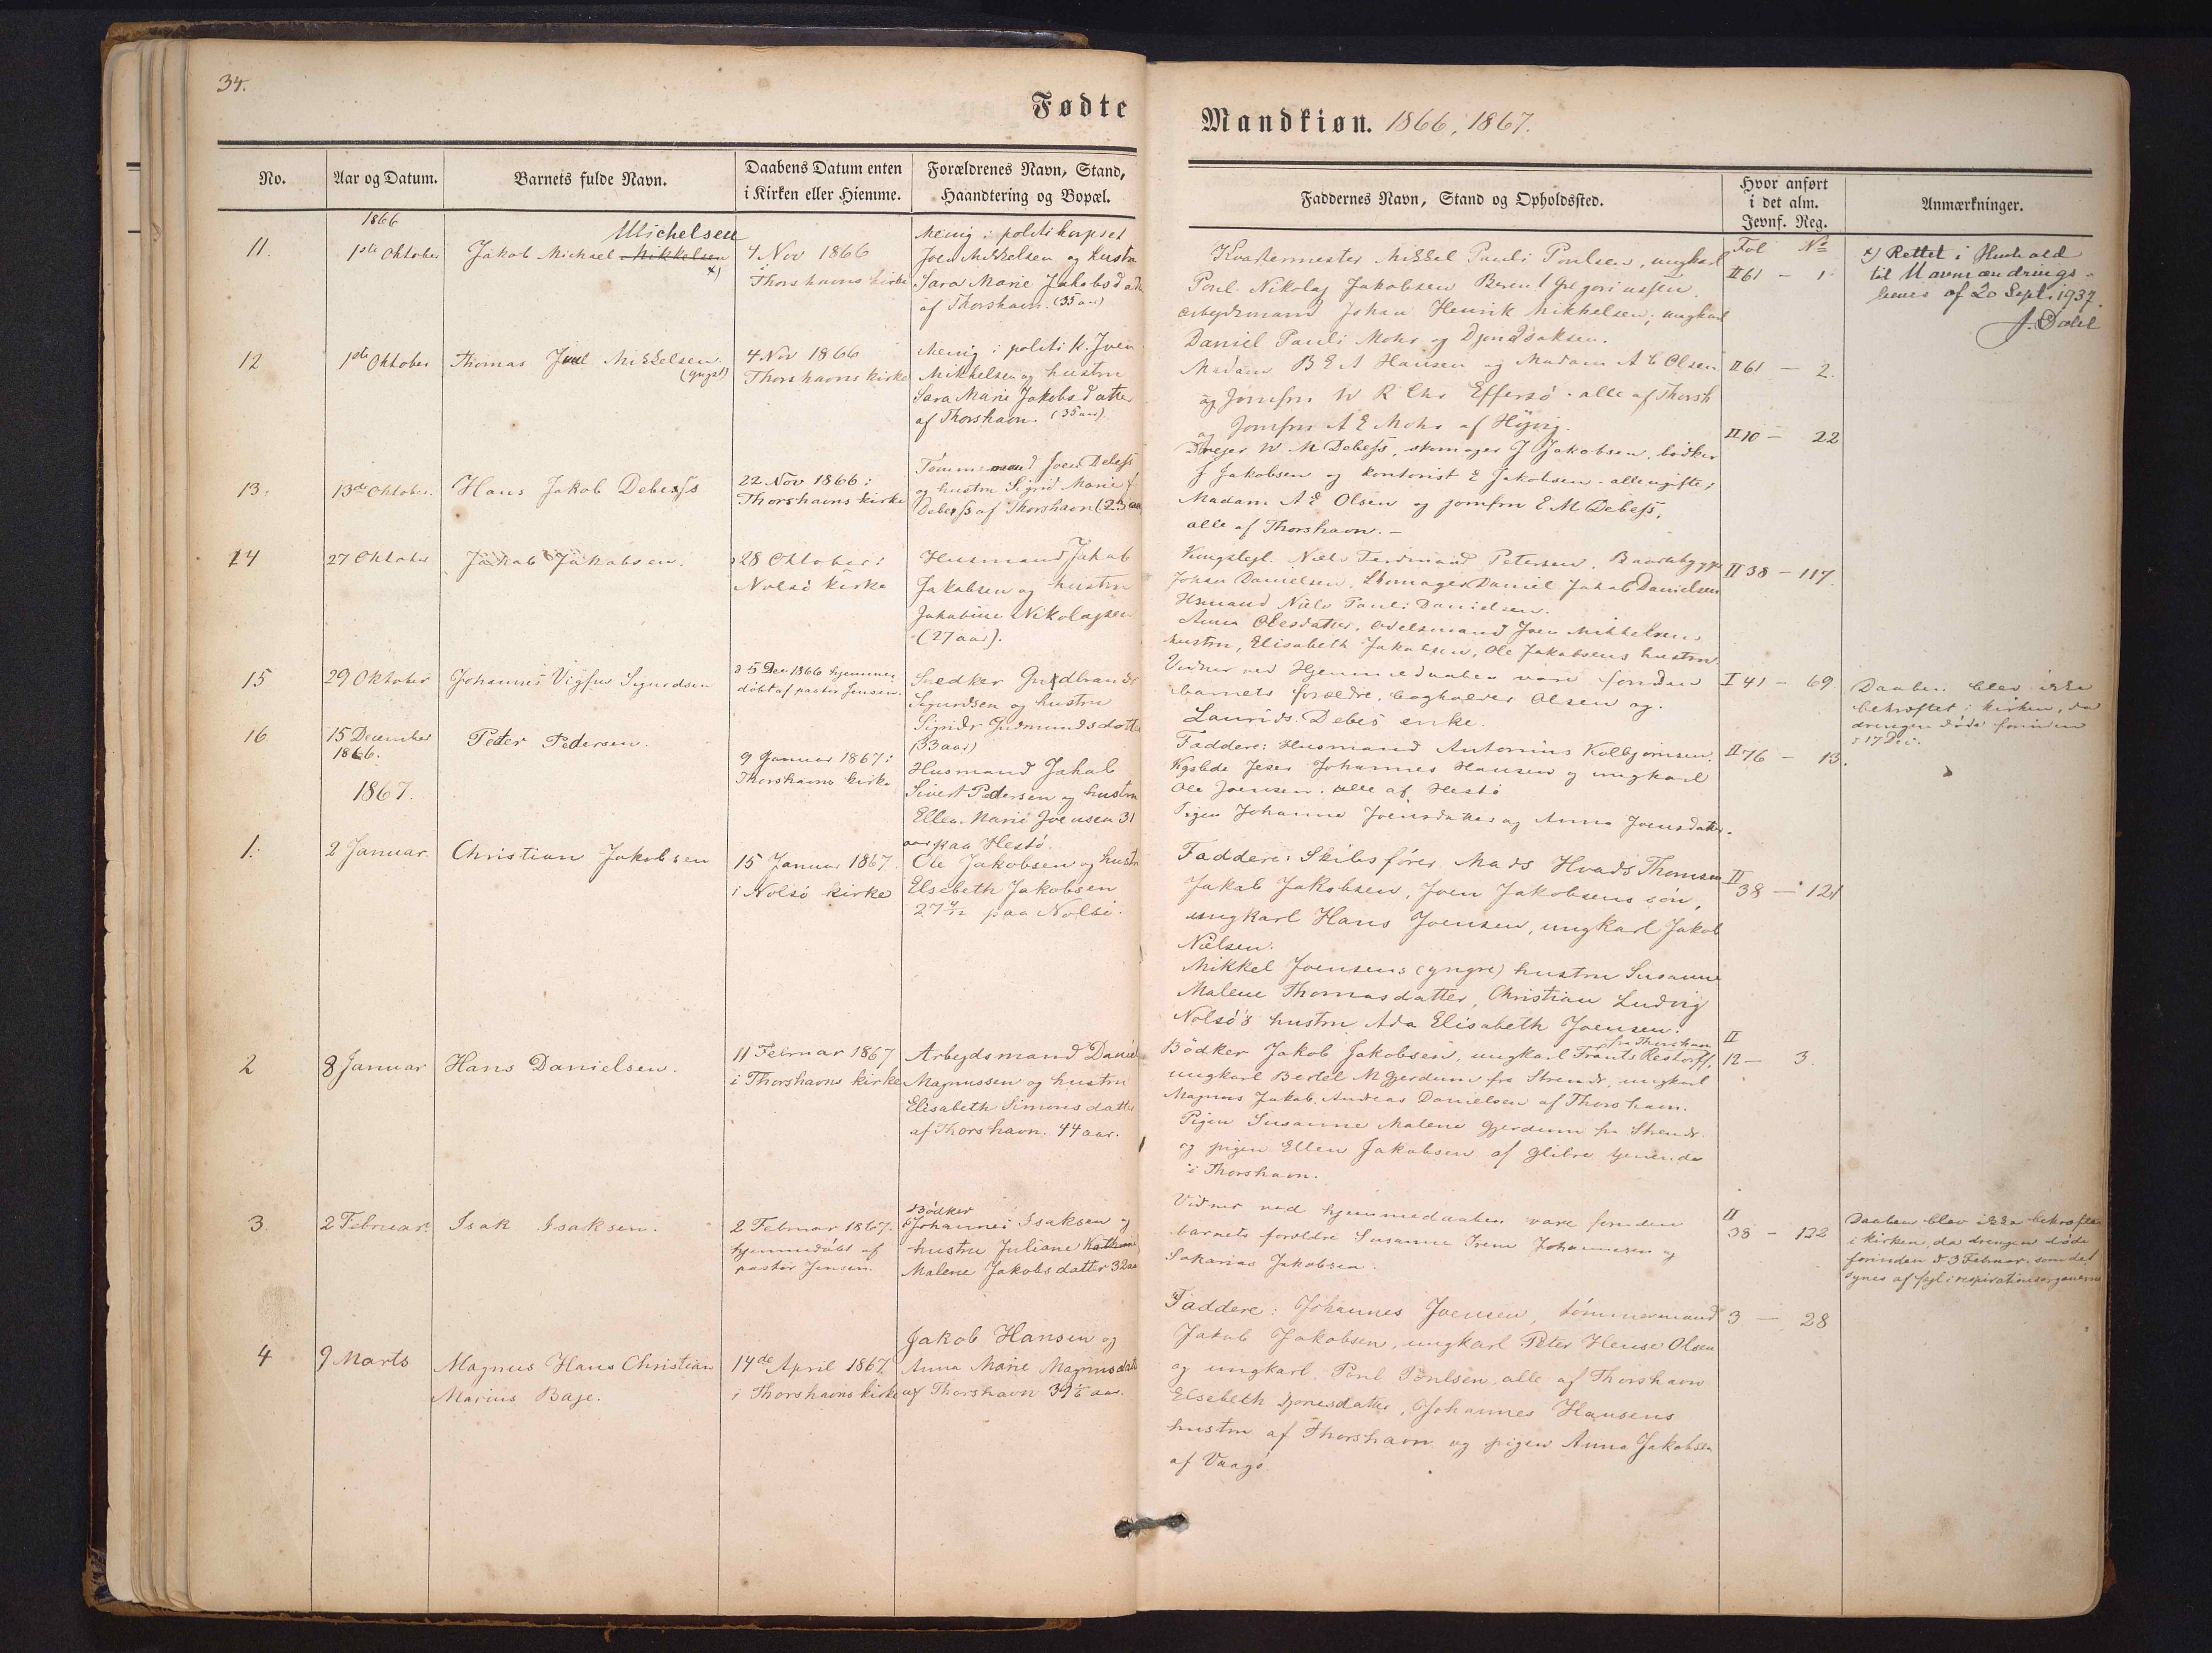 34.
Fødte
Mandkiøn. 1866, 1867.
No.
Aar og Datum.
Barnets fulde Navn.
Daabens Datum enten
i Kirken eller Hiemme.
Forældrenes Navn, Stand,
Haandtering og Bopæl.
Faddernes Navn, Stand og Opholdssted.
Hvor anført
i det alm.
Jevnf. Reg.
Anmærkninger.
1866
11.
1ste Oktober
Michelsen
Jakob Michael Mikkelsen x)
4 Nov 1866
i
Thorshavns kirke
Menig i politikorpset
Joen Mikkelsen og hustru
Sara Marie Jakobsdatter
af Thorshavn. (35 aar)
Kvartermester Mikkel Pauli Poulsen, ungkarl
Poul Nikolaj Jakobsen Berent Gregoriussen
arbejdsmand Johan Henrik Mikkelsen, ungkarl
Daniel Pauli Mohr og Djoné Isaksen.
Fol No
II 61 - 1
x) Rettet i Henhold
til Navneændrings-
bevis af 20 Sept. 1937.
J. Dahl
12
1ste Oktober
Thomas Juul Mikkelsen
(yngst)
4 Nov 1866
Thorshavns kirke
Menig i politi k. Joen
Mikkelsen og hustru
Sara Marie Jakobsdatter
af Thorshavn. (35 aar)
Madam B E A Hansen og Madam A C Olsen
og Jomfru W R Chr Effersö - alle af Thorsh
og Jomfru A E Mohr af Höjvig.
II 61 - 2.
13.
13de Oktober.
Hans Jakob Debesss
22 Nov 1866 i
Thorshavns kirke
Tömmermand Joen Debess
og hustru Sigrid Marie f
Debess af Thorshavn (23 aar
Drejer W M Debess, skomager J Jakobsen, bödker
J Jakobsen og kontorist E Jakobsen - alle ugifte;
Madam A E Olsen og jomfru E M Debess,
alle af Thorshavn. -
II 10 - 22
14
27 Oktober
Jakob Jakobsen.
28 Oktober i
Nolsö kirke
Husmand Jakob
Jakobsen og hustru
Jakobine Nikolajsen
(27 aar).
Kongsfejl. Niels Ferdinand Petersen, Baadebygger
Johan Danielsen, Skomager Daniel Jakob Danielsen
Husmand Niels Pauli Danielsen.
Anna Olesdatter, odelsmand Joen Mikkelsens
hustru, Elisabeth Jakobsen, Ole Jakobsens hustru
II 38 - 117.
15
29 Oktober
Johannes Vigfus Sigurdsen
d 5 Dec 1866 hjemme-
döbt af pastor Jensen.
Snedker Gudbrandr
Sigurdsen og hustru
Sigridr Gudmundsdotter
(33 aar)
Vidner ved Hjemmedaaben vare foruden
barnets forældre, bogholder Olsen og
Laurids Debes' enke.
I 41 - 69
Daaben blev ikke
bekræftet i kirken, da
drengen döde forinden
d 17 Dec.
16.
15 December
1866.
Peter Pedersen.
9 Januar 1867 i
Thorshavns kirke
Husmand Jakob
Sivert Pedersen og hustru
Ellen Marie Joensen 31
aar paa Hestö.
Faddere: Husmand Antonius Kolbjörnsen,
Kgsbde Jesper Johannes Hansen og ungkarl
Ole Joensen. alle af Hestö
Pigen Johanne Joensdatter og Anna Joensdatter.
II 76 - 13.
1867.
1.
2 Januar.
Christian Jakobsen
15 Januar 1867.
i Nolsö kirke
Ole Jakobsen og hustru
Elsebeth Jakobsen
27 4/12 paa Nolsö.
Faddere: Skibsförer Mads Hvads Thomsen
Jakob Jakobsen, Joen Jakobsens sön,
ungkarl Hans Joensen, ungkarl Jakob
Nielsen.
Mikkel Joensens (yngre) hustru Susanne
Malene Thomasdatter, Christian Ludvig
Nolsö's hustru Ada Elisabeth Joensen.
II
38 - 121
2
8 Januar
Hans Danielsen.
11 Februar 1867
i Thorshavns kirke
Arbejdsmand Daniel
Magnussen og hustru
Elisabeth Simonsdatter
af Thorshavn. 44 aar.
fra Thorshavn
Bödker Jakob Jakobsen, ungkarl Frants Restorff,
ungkarl Bertel M Gjerdum fra Strendr, ungkarl
Magnus Jakob Andreas Danielsen af Thorshavn.
Pigen Susanne Malene Gjerdum fra Strendr.
og pigen Ellen Jakobsen af Glibre tjenende
i Thorshavn.
II
12 - 3.
3.
2 Februar.
Isak Isaksen.
2 Februar 1867.
hjemmedöbt af
pastor Jensen.
Bödker
Johannes Isaksen og
hustru Juliane Kathrine
Malene Jakobsdatter 32 aar
Vidner ved hjemmedaaben vare foruden
barnets forældre Susanne Irene Johannesen og
Sakarias Jakobsen.
II
38 - 122
Daaben blev ikke bekræftet
i kirken, da drengen döde
forinden d 3 Februar, som det
synes af fejl i respirationsorganerne
4
9 Marts
Magnus Hans Christian
Marius Baje.
14de April 1867
i Thorshavns kirke
Jakob Hansen og
Anna Marie Magnusdatter
af Thorshavn 39 1/2 aar.
Faddere: Johannes Joensen, tömmermand
Jakob Jakobsen, ungkarl Peter Hense Olsen
og ungkarl Poul Poulsen alle af Thorshavn
Elsebeth Djonesdatter, Johannes Hansens
hustru af Thorshavn og pigen Anna Jakobsen
af Vaagö
3 - 28